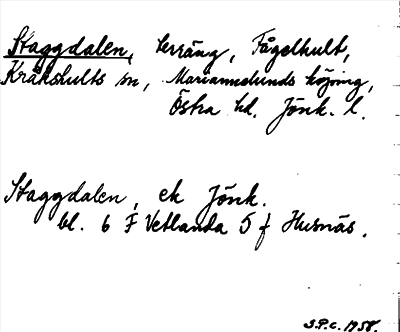 Staggdalen, terräng, Fågelhult,
Kråkshults sn, Mariannelunds köping,
Östra hd. Jönk. l.
Staggdalen, ek Jönk.
bl. 6 F Vetlanda 5 f Husnäs.
S.P.c. 1958.